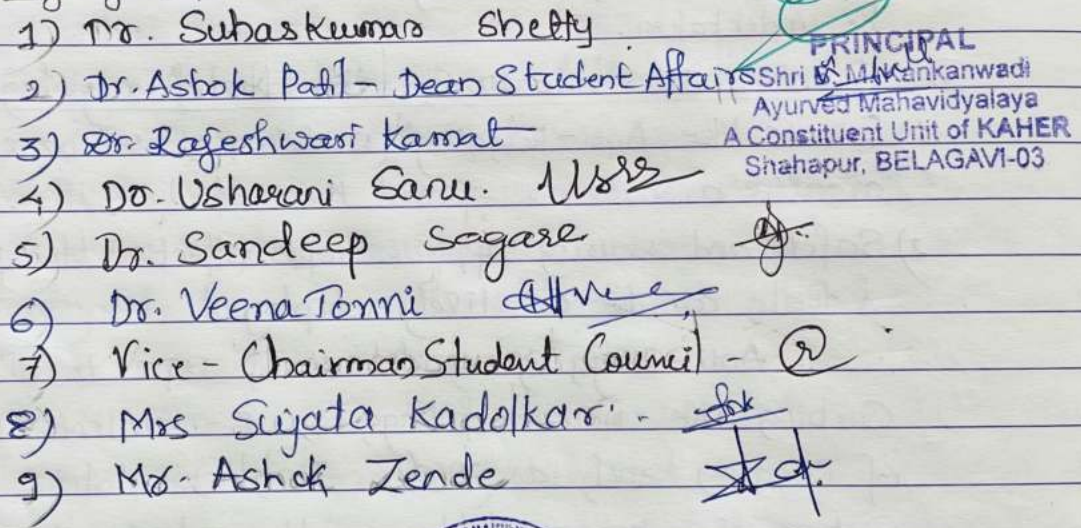 1) Dr. Suhaskumar Shetty.
2) Dr. Ashok Patil - Dean Student Affairs
3) Dr. Rajeshwari Kamat
4) Dr. Usharani Sanu.
5) Dr. Sandeep Sagare
6) Dr. Veena Tonni
7) Vice - Chairman Student Council -
8) Mrs Sujata Kadolkar. -
9) Mr. Ashok Zende
PRINCIPAL
Shri Kankanwadi
Ayurved Mahavidyalaya
A Constituent Unit of KAHER
Shahapur, BELAGAVI-03